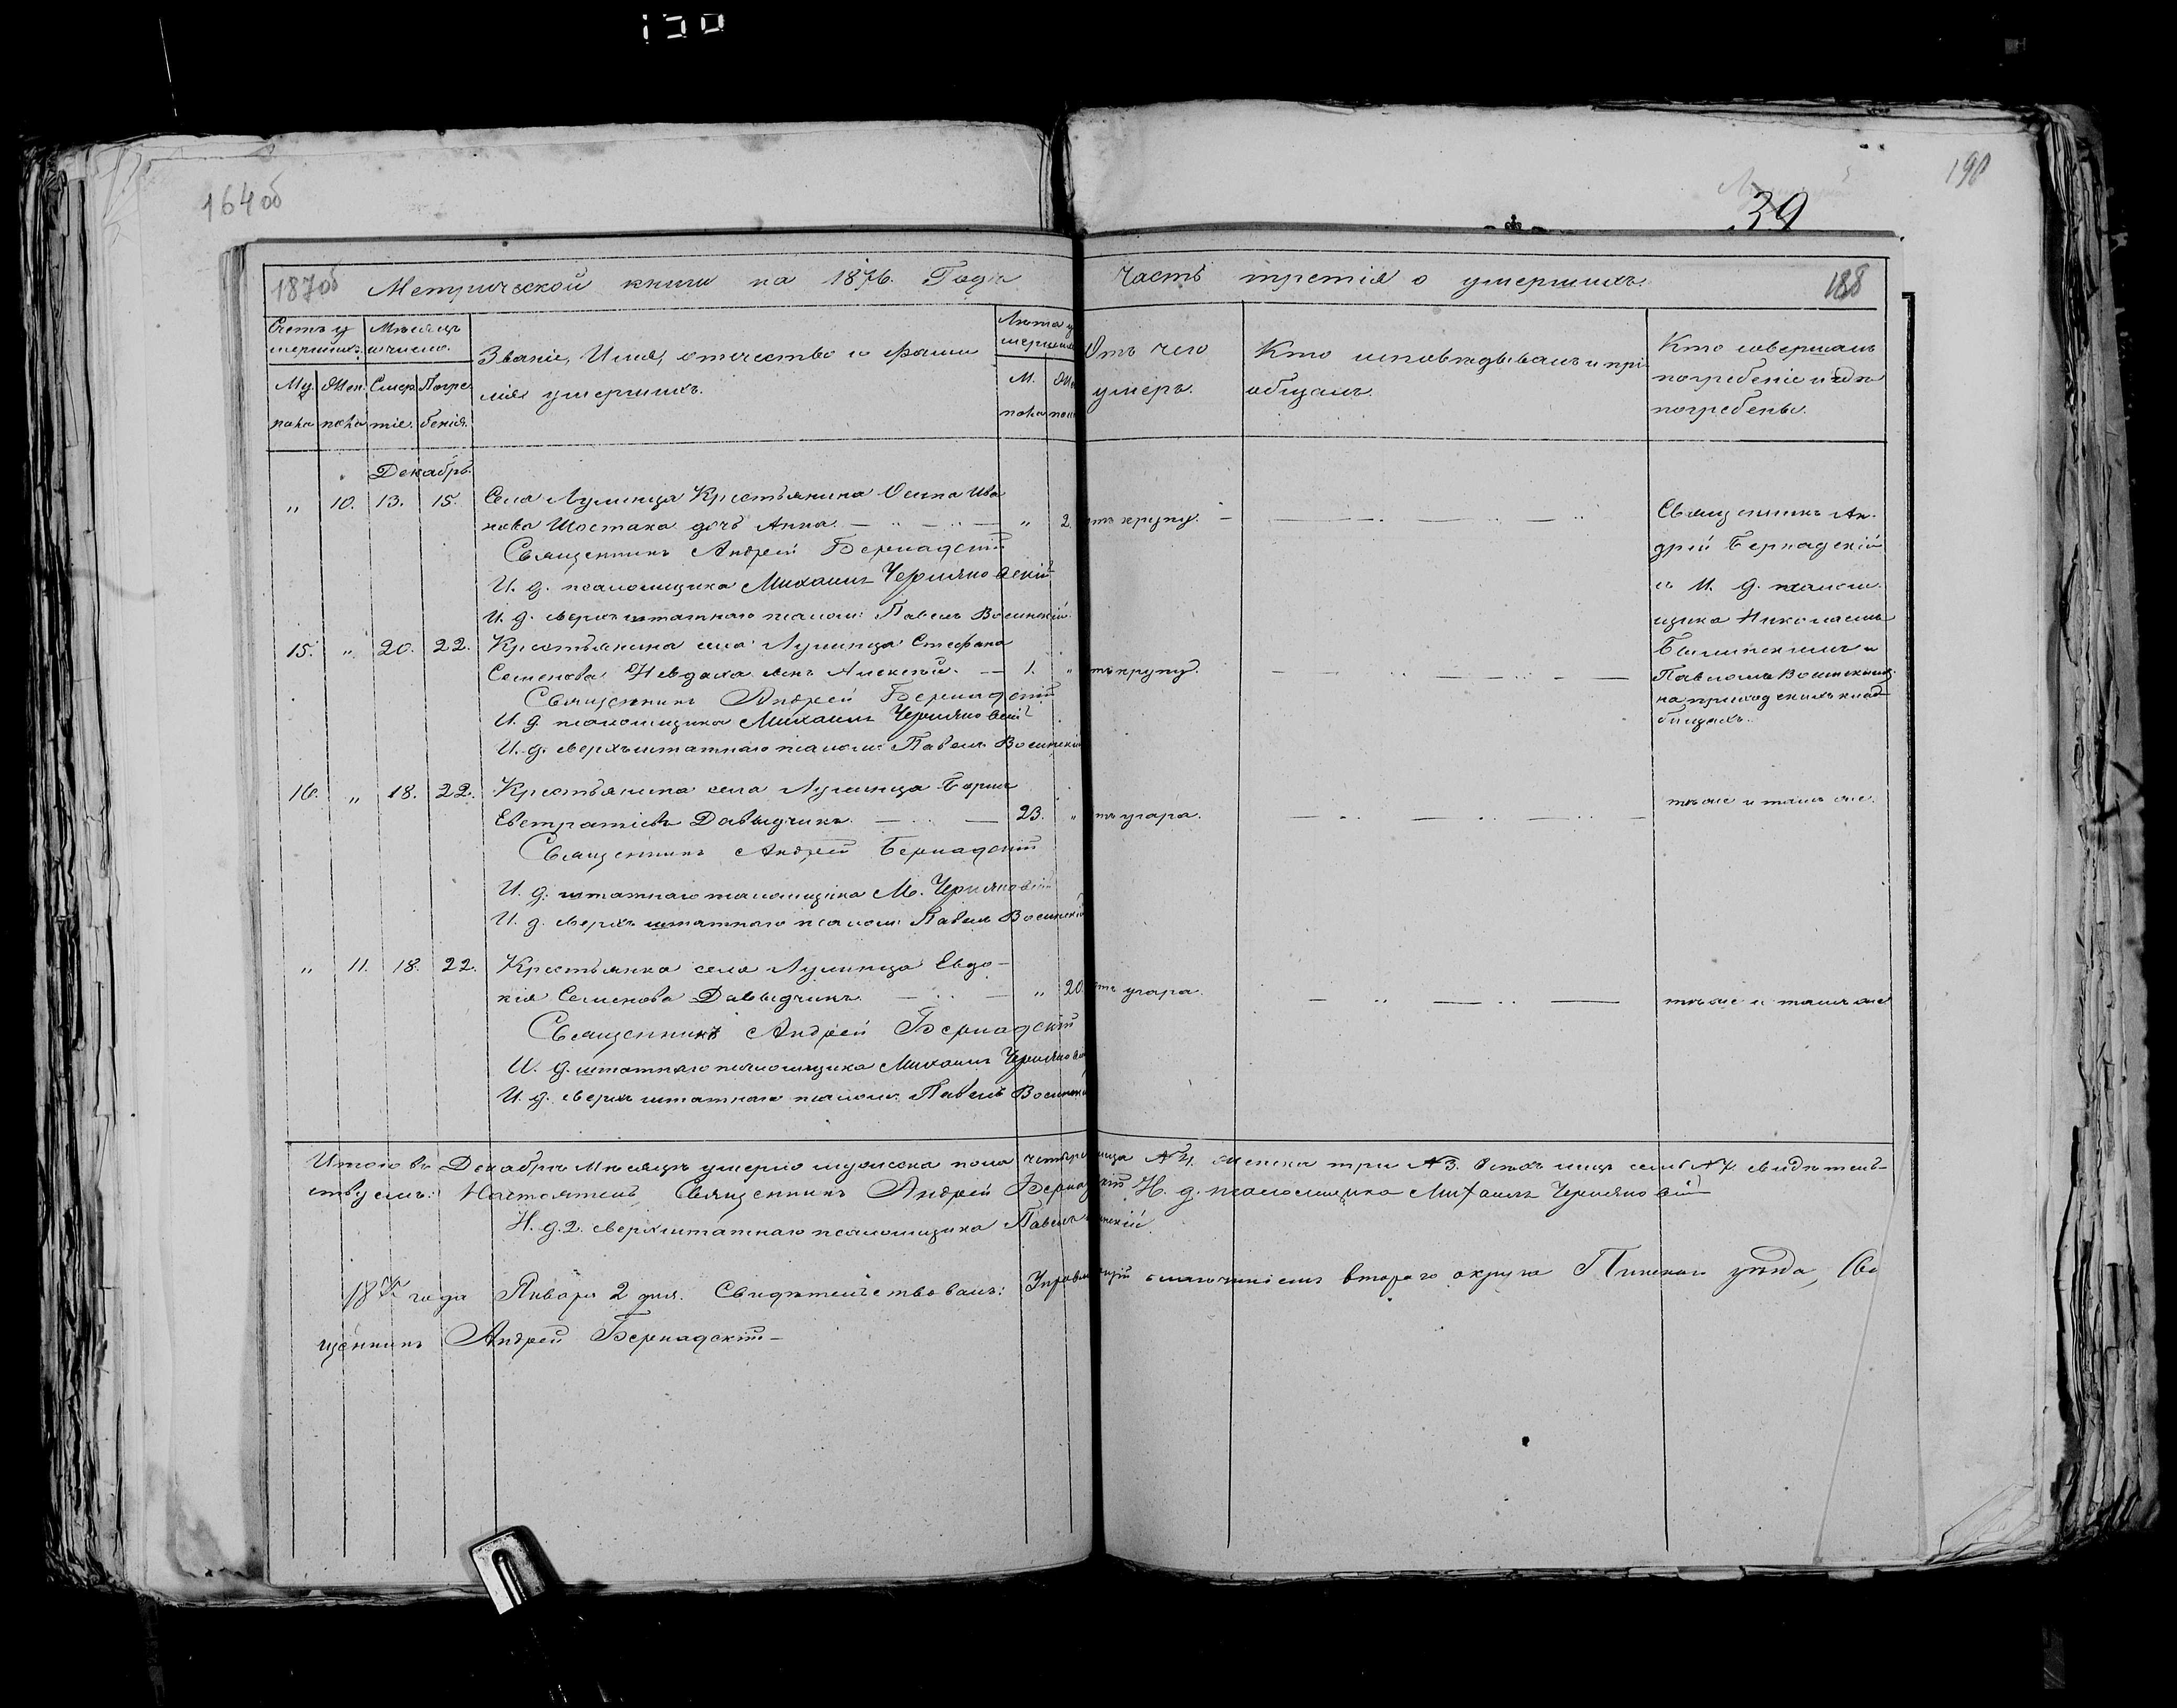 164об
190
39
187об Метрической книги на 1876. Годъ
Часть третія о умершихъ.
188
Счетъ у
мершихъ.
Мѣсяцъ
и число.
Званіе, Имя, отчество и фами
лія умершихъ.
Лѣта у
мершихъ
Му
жска
Жен
ска
Смер
тіе.
Погре
бенія.
М.
пола
Отъ чего
умеръ.
Кто исповѣдывалъ и прі
общалъ.
Кто совершалъ
погребеніе и гдѣ
погребены.
Декабрь.
„ 10. 13. 15. Села Лулинца Крестьянина Осипа Ива
нова Шостака дочь Анна. „ 2. отъ крупу.
Священникъ Андрей Бернадскій
И. д. псаломщика Михаилъ Черняковскій
И. д. сверхштатнаго псалом: Павелъ Восинскій.
Священникъ Ан-
дрей Бернадскій
съ И. д. псалом-
щика Николаемъ
и
Павломъ
на приходскихъ клад-
бищахъ.
15. „ 20. 22. Крестьянина села Лулинца Стефана
Семенова Невдаха сынъ Алексѣй. 1. „ отъ крупу.
Священникъ Андрей Бернадскій
И. д. псаломщика Михаилъ Черняковскій
И. д. сверхъштатнаго псалом: Павелъ Восинскій
16. „ 18. 22. Крестьянина села Лулинца Борисъ
Евстратіевъ Давыдчикъ. 23. „ отъ угара.
тѣ же и тамъ же.
Священникъ Андрей Бернадскій
И. д. штатнаго псаломщика М. Черняковскій
И. д. сверхъ штатнаго псалом: Павелъ Восинскій
„ 11. 18. 22. Крестьянка села Лулинца Евдо-
кія Семенова Давыдчикъ. „ 20. отъ угара.
тѣ же и тамъ же
Священникъ Андрей Бернадскій
И. д. штатнаго псаломщика Михаилъ Черняковскій
И. д. сверхъ штатнаго псалом: Павелъ Восинскій
Итого въ Декабрѣ мѣсяцѣ умерло мужска пола четыре лица №4. женска три №3. всѣхъ лицъ семь №7. свидѣтель-
ствуемъ: Настоятель, Священникъ Андрей Бернадскій И. д. псаломщика Михаилъ Черняковскій
И. д. 2. сверхштатнаго псаломщика Павелъ
года Января 2 дня. Свидѣтельствовалъ: Управляющій благочиніемъ втораго округа Пинскаго уѣзда, Свя
щенникъ Андрей Бернадскій